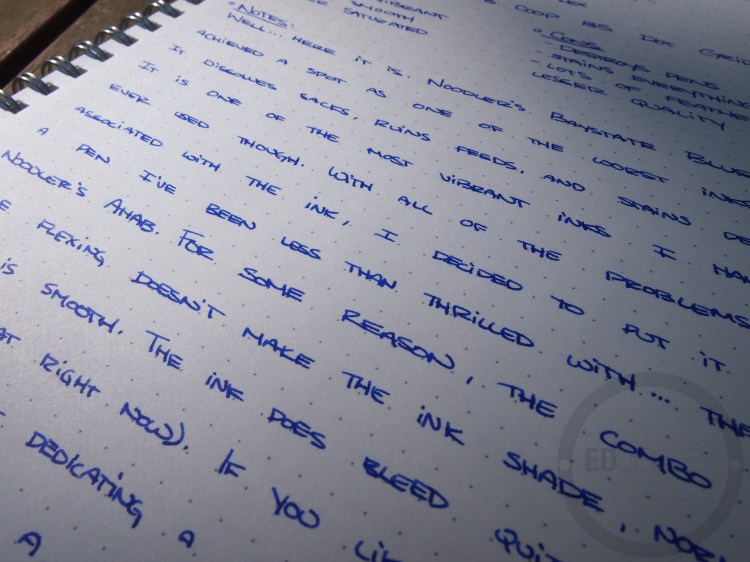 VIBRANT
SMOOTH
SATURATED
COOP
DOT GRID
• NOTES:
• CONS
- DESTROYS PENS
- STAINS EVERYTHING
- LOTS OF FEATHE
LESSER QUALITY
WELL... HERE IT IS. NOODLER'S BAYSTATE BLUE
ACHIEVED A SPOT AS ONE OF THE WORST INKS
IT DISSOLVES SACKS, RUINS FEEDS, AND STAINS
IT IS ONE OF THE MOST VIBRANT INKS I HAV
EVER USED THOUGH. WITH ALL OF THE PROBLEMS
ASSOCIATED WITH THE INK, I DECIDED TO PUT IT
A PEN I'VE BEEN LESS THAN THRILLED WITH... THE
NOODLER'S AHAB. FOR SOME REASON, THE COMBO
FLEXING DOESN'T MAKE THE INK SHADE, NOR
IS SMOOTH. THE INK DOES BLEED QUIT
AT RIGHT NOW). IF YOU LIK
DEDICATING A
A